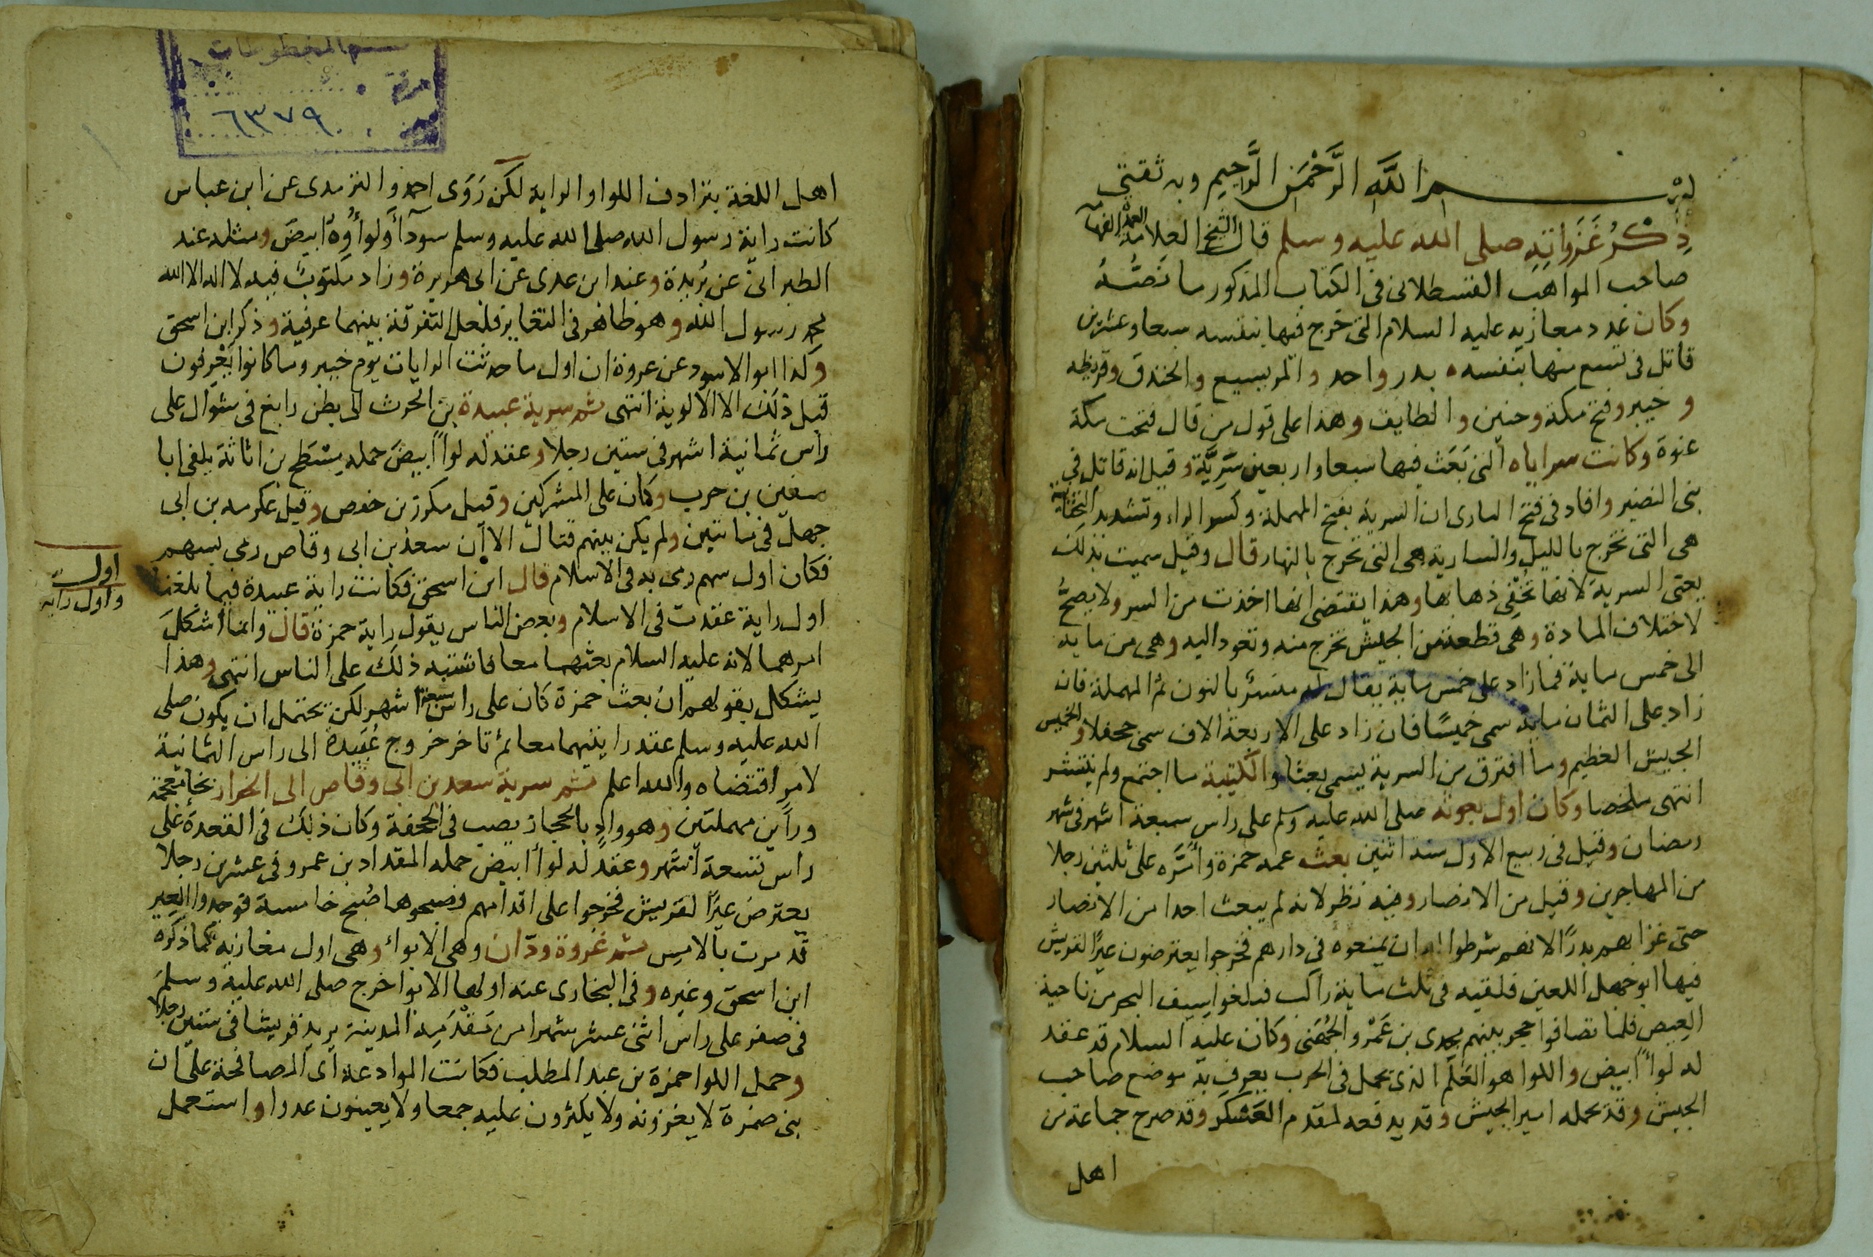 بسم الله الرحمن الرحيم وبه ثقتي
ذكر غزواته صلى الله عليه وسلم قال الشيخ العلامة
صاحب المواهب القسطلانى فى الكتاب المذكور ما نصه
وكان عدد مغازيه عليه السلام التى خرج فيها بنفسه سبعا وعشرين
قاتل فى تسع منها بنفسه بدر واحد والمريسيع والخندق وقريظه
و خيبر وفتح مكة وحنين والطايف وهذا على قول من قال فتحت مكة
عنوة وكانت سراياه التى بعث فيها سبعا واربعين سرية وقيل انه قاتل فى
بنى النضير وافاد فى فتح البارى ان السرية بفتح المهملة وكسر الراء وتشديد التحتانية
هى التى تخرج بالليل والسارية هى التى تخرج بالنهار قال وقيل سميت بذلك
يعنى السرية لانها تخفى ذهابها وهذا يقتضى انها اخذت من السر ولا يصح
لاختلاف المادة وهى قطعة من الجيش تخرج منه وتعود اليه وهى من ماية
الى خمس ماية فما زاد على خمس ماية يقال له منسر بالنون ثم المهملة فان
زاد على الثمان ماية سمى خميسًا فان زاد على الاربعة الاف سمى جحفلا والخميس
الجيش العظيم وما افترق من السرية يسمى بعثا والكتيبة ما اجتمع ولم ينتشر
انتهى ملخصا وكان اول بعوثه صلى الله عليه وسلم على راس سبعة اشهر فى شهر
رمضان وقيل فى ربيع الاول سنة اثنين بعث عمه حمزة وأمّره على ثلثين رجلا
من المهاجرين وقيل من الانصار وفيه نظر لانه لم يبعث احدا من الانصار
حتى غزا بهم بدرًا لانهم شرطوا له ان يمنعوه فى دارهم فخرجوا يعترضون عيرًا لقريش
فيها ابو جهل اللعين فلقيه فى ثلث ماية راكب فبلغوا سيف البحر من ناحية
العيص فلما تصافوا حجز بينهم مجدى بن عمرو الجهنى وكان عليه السلام قد عقد
له لواءً ابيض واللوا هو العلم الذى يحمل فى الحرب يعرف به موضع صاحب
الجيش وقد يحمله امير الجيش وقد يدفعه لمقدم العسكر وقد صرح جماعة من
اهل
٦٣٧٩
اهل اللغة بترادف اللوا والراية لكن روى احمد والترمدى عن ابن عباس
كانت راية رسول الله صلى الله عليه وسلم سودآ ولواؤه ابيض ومثله عند
الطبرانى عن بريدة وعند ابن عدى عن ابى هريرة وزاد مكتوب فيه لا اله الا الله
محمد رسول الله وهو ظاهر فى التغاير فلعل التفرقة بينهما عرفية وذكر ابن اسحق
وكذا ابو الاسود عن عروة ان اول ما حدثت الرايات يوم خيبر وما كانوا يعرفون
قبل ذلك الا الالوية انتهى ثم سرية عبيدة بن الحرث الى بطن رابغ فى شوال على
راس ثمانية اشهر فى ستين رجلا وعقد له لواءً ابيض حمله مسطح بن اثاثة يلقى ابا
سفين بن حرب وكان على المشركين وقيل مكرز بن حفص وقيل عكرمه بن ابى
جهل فى ماتين ولم يكن بينهم قتال الا ان سعد بن ابى وقاص رمى بسهم
فكان اول سهم رمى به فى الاسلام قال ابن اسحق فكانت راية عبيدة فيما بلغنا
اول
واول راية
اول راية عقدت فى الاسلام وبعض الناس يقول راية حمزة قال وانما أشكل
امرهما لانه عليه السلام بعثهما معا فاشتبه ذلك على الناس انتهى وهذا
يشكل بقولهم ان بعث حمزة كان على راس سبعة اشهر لكن يحتمل ان يكون صلى
الله عليه وسلم عقد رايتيهما معا ثم تاخر خروج عُبيدة الى راس الثمانية
لامر اقتضاه والله اعلم ثم سرية سعد بن ابى وقاص الى الخرار بخاء معجمة
وراءين مهملتين وهو واد بالحجاز يصب فى الجحفة وكان ذلك فى القعدة على
راس تسعة أشهر وعقد له لواءً ابيض حمله المقداد بن عمرو فى عشرين رجلا
يعترض عيرًا لقريش فخرجوا على اقدامهم فصبحوها صُبح خامسة فوجدوا العير
قد مرت بالامس ثم غزوة ودّان وهى الابواء وهى اول مغازيه كما ذكره
ابن اسحق وغيره وفى البخارى عنه اولها الابوا خرج صلى الله عليه وسلم
فى صفر على راس اثنى عشر شهرا من مقدمه المدينة يريد قريشا فى ستين رجلا
وحمل اللوا حمزة بن عبد المطلب فكانت الموادعة أى المصالحة على ان
بنى ضمرة لا يغزونه ولا يكثرون عليه جمعا ولا يعينون عدوا واستعمل